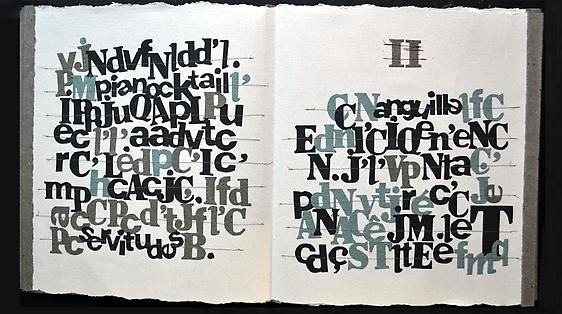 vJNdvfNldd'l.
PMpianocktaill'
IPRJuQAPLPu
ec l'l'aadvtc
rC'LèdpC'IC'
mphcAcjC.Ifd
accCPcd'tJfl'C
PcservitudesB.
II
CNanguillelfC
Ednl'CIOEn'eNC
N.J'l'VpNtaC'
pdNvtjrécC'Je
ANACeJM.leT
cdçSTltEefmd